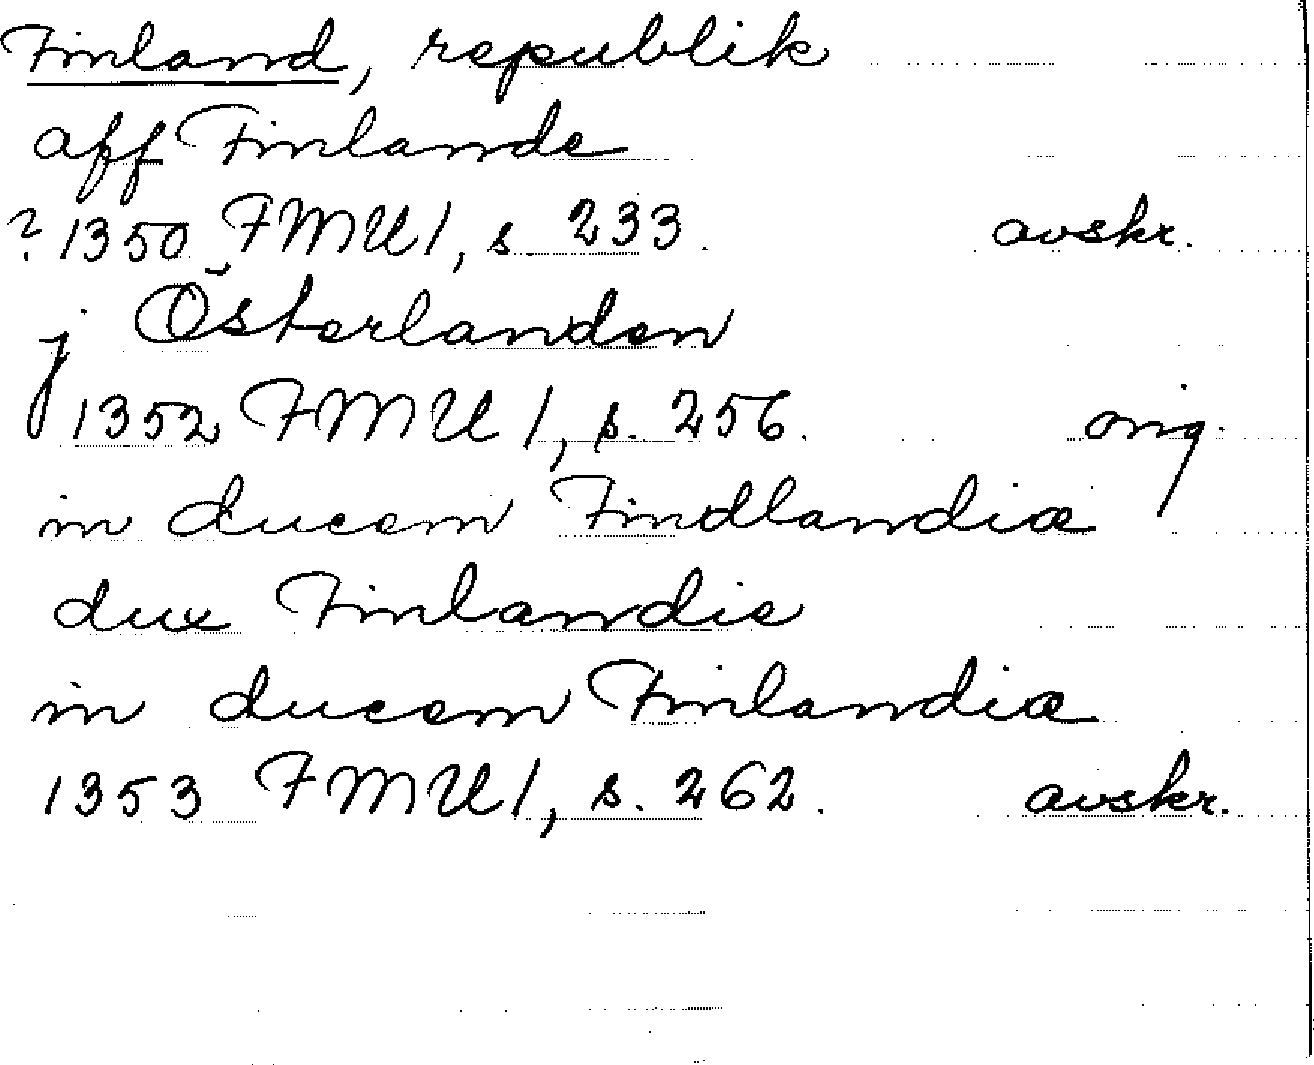 Finland, republik
aff Finlande
? 1350 FMU 1, s. 233. avskr.
j Österlanden
1352 FMU 1, s. 256. orig.
in ducem Findlandiæ
dux Finlandie
in ducem Finlandiæ
1353 FMU 1, s. 262. avskr.